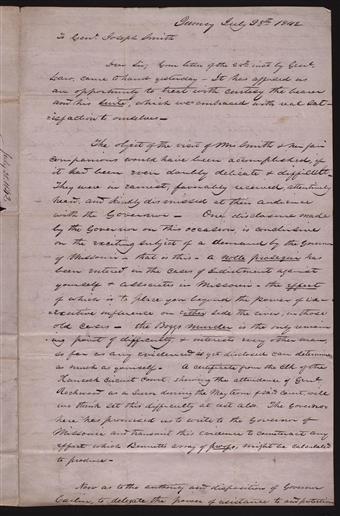 Quincy July 25th 1842
To Genl. Joseph Smith
Dear Sir, Your letter of the 20th inst by Genl.
Law, came to hand yesterday — It has afforded us
an opportunity to treat with curtesy the bearer
and his suite, which we embraced with real sat-
isfaction to ourselves —
The object of the visit of Mrs Smith & her fair
companions would have been accomplished, if
it had been even doubly delicate & difficult
They were in earnest, favorably received, attentively
heard, and kindly dismissed at their audience
with the Governor — One disclosure made
by the Governor on this occasion, is conclusive
on the exciting subject of a demand by the Governor
of Missouri — that is this — a nolle prosequi has
been entered in the cases of Indictment against
yourself & associates in Missouri — the effect
of which is to place you beyond the power of
executive influence on either side the river, in those
old cases — the Boggs murder is the only remain-
ing point of difficulty, & interests very other man,
so far as any evidence as yet disclosed can determine
as much as yourself. A certificate from the Clk of the
Hancock Circuit Court, showing the attendance of Genl.
Rockwood as a Juror during the May term of sd. court, will
we think set this difficulty at rest also. The Governor
here has promised us to write to the Governor of
Missouri and transmit this evidence to counteract any
effort which Bennetts essay might be calculated
to produce —
Now as to the authority and disposition of Governor
Carlin, to delegate the power of assistance to and protection
July 25 1842